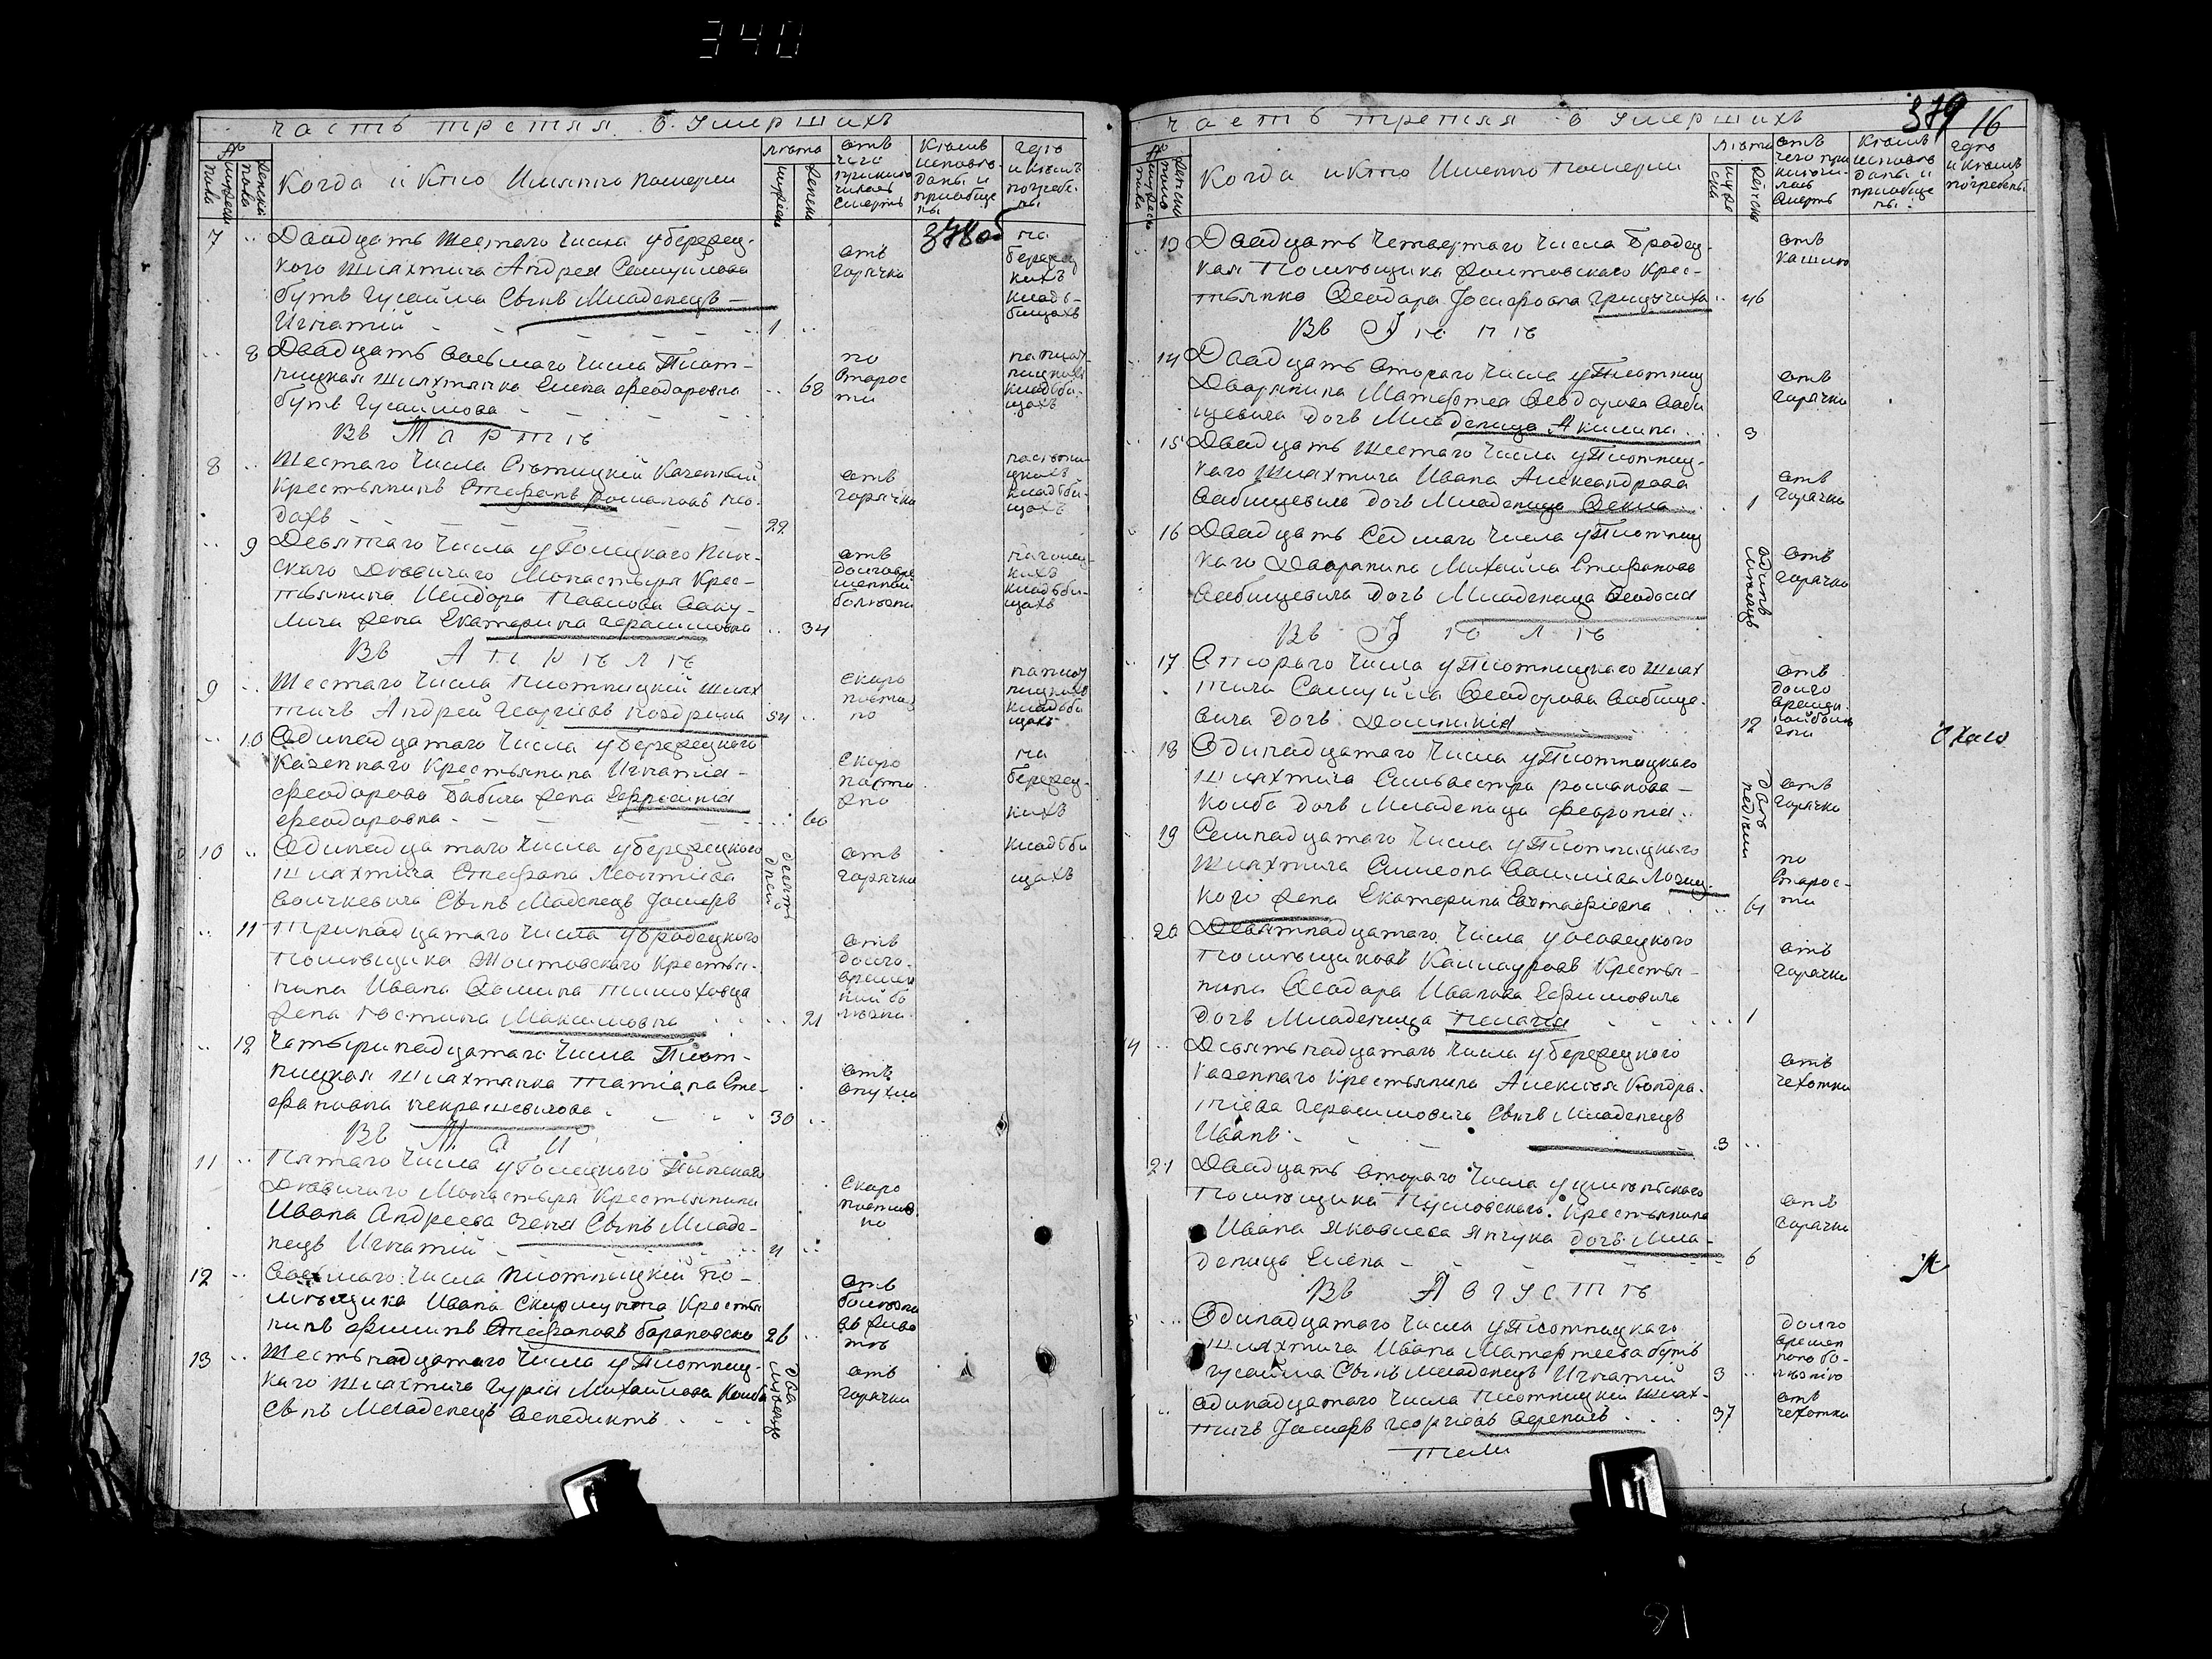 340
часть третяя о умершихъ
№
мужеска пола
женска пола
Когда и кто Имянно померли
лѣта
мужеск
женск
отъ чего приключилась смерть
Кѣмъ исповѣданы и приобщены
гдѣ и кѣмъ погребены
378об
7
Двадцать шестаго числа у берез
кого шляхтича Андрея Самуилова
бутъ Гусаима Сынъ Младенецъ
Игнатій
1
отъ
горячки
на
кихъ
кладь-
бищахъ
8
Двадцать восьмаго числа Плот-
ницкая шляхтянка Елена Феодоровна
бутъ Гусаимова
68
по
старос
ти
на плот
ницкихъ
кладьби-
щахъ
Въ Мартѣ
8
Шестаго числа Казенный
Крестьянинъ Стефанъ Романовъ
22
отъ
горячки
кладьби-
щахъ
9
Девятаго числа у Гомецкаго Пин-
скаго Дѣвичаго Монастыря Крес-
тьянина Исидора Павлова Ваку-
лича жена Екатерина Герасимовна
34
отъ
долговре
менной
болѣзни
кладьби-
щахъ
Въ Апрѣлѣ
9
Шестаго числа Плотницкій шлях
тичъ Андрей Георгіевъ Коздрина
54
скоро
постиж
но
на плот
ницкихъ
кладьби
щахъ
10
Одинадцатаго числа у берез
Казеннаго Крестьянина Игнатія
Феодорова Бабича жена Ефросинія
Феодоровна
60
скоро
пости
жно
на
кихъ
10
Одинадцатаго числа у
шляхтича Стефана Леонтіева
Воичкевича Сынъ Младенецъ Іосифъ
дней
отъ
горячки
кладьби
щахъ
11
Тринадцатаго числа у бродецкого
помѣщика Жолтовскаго Крестья-
нина Ивана Фомина Тимоховца
жена Юстина Максимовна
21
отъ
долго-
времен
ной бо
лѣзни
12
Четыринадцатаго числа Плот-
ницкая шляхтянка Татіана Сте-
фановна Некрашевичова
30
отъ
опухли
Въ Маи
11
Пятаго числа у Гомецкого Пинскаго
Дѣвичаго Монастыря Крестьянина
Ивана Андреева Сынъ Младе-
нецъ Игнатій
4
скоро
постиж
но
12
Восьмаго числа Плотницкій По-
мѣщика Ивана Скирмунта Крестья
нинъ Филипъ Стефановъ Барановски
26
отъ
болѣзни
въ живо
тѣ
13
Шестьнадцатаго числа у Плотниц-
каго шляхтича Гурія Михайлова Колба
Сынъ Младенецъ Венедиктъ
два мѣсяца
отъ
горячки
379 16
часть третяя о умершихъ
№
Когда и кто Именно померли
лѣта
муже
ска
женска
отъ
чего при
ключи-
лась
смерть
Кѣмъ
исповѣ
даны и
приобще
ны
гдѣ
и кѣмъ
погребены
13
Двадцать четвертаго числа бродец-
кая помѣщика Жолтовскаго Крес-
тьянка Феодора Іосифова Грицучиха
46
отъ
кашлю
Въ Іюнѣ
14
Двадцать втораго числа у Плотниц
Дворянина Матфея Феодорова Ваби
щевича дочь Младеница Акилина
3
отъ
горячки
15
Двадцать шестаго числа у Плотниц-
каго Шляхтича Ивана Александрова
Вабищевича дочь Младеница Фекла
1
отъ
горячки
16
Двадцать седмаго числа у Плотниц
каго Дворянина Михаила Стефанова
Вабищевича дочь Младеница Феодосія
одинъ мѣсяцъ
отъ
горячки
Въ Іюлѣ
17
Втораго числа у Плотницкаго шлях
тича Самуила Феодорова Вабище-
вича дочь Доминикія
12
отъ
долго
времен
ной болѣ
зни
18
Одинадцатаго числа у Плотницкаго
шляхтича Сильвестра Романова
Колба дочь Младеница Феврония
двѣ недѣли
отъ
горячки
19
Семнадцатаго числа у Плотницкаго
шляхтича Симеона Василіева Лозиц-
кого жена Екатерина Евстафіевна
61
по
старос-
ти
20
Девятнадцатаго числа у осовецкого
помѣщиковъ Крестья-
нина Феодора Иванова Ефимовича
дочь Младеница Пелагія
1
отъ
горячки
14
Девятьнадцатаго числа у
казеннаго Крестьянина Алексѣя Кондра-
тіева Герасимовича Сынъ Младенецъ
Иванъ
3
отъ
чехотки
21
Двадцать втораго числа у
помѣщика Пусловскаго Крестьянина
Ивана Яковлева Янчука дочь Мла-
деница Елена
6
отъ
горячки
Въ Августѣ
Одинадцатаго числа у Плотницкаго
шляхтича Ивана Матфеева бутъ
Гусаима Сынъ Младенецъ Игнатій
3
долго
времен
ною бо-
лѣзнію
Одинадцатаго числа Плотницкій шлях-
тичъ Іосифъ Георгіевъ Вереничъ
37
отъ
чехотки
81